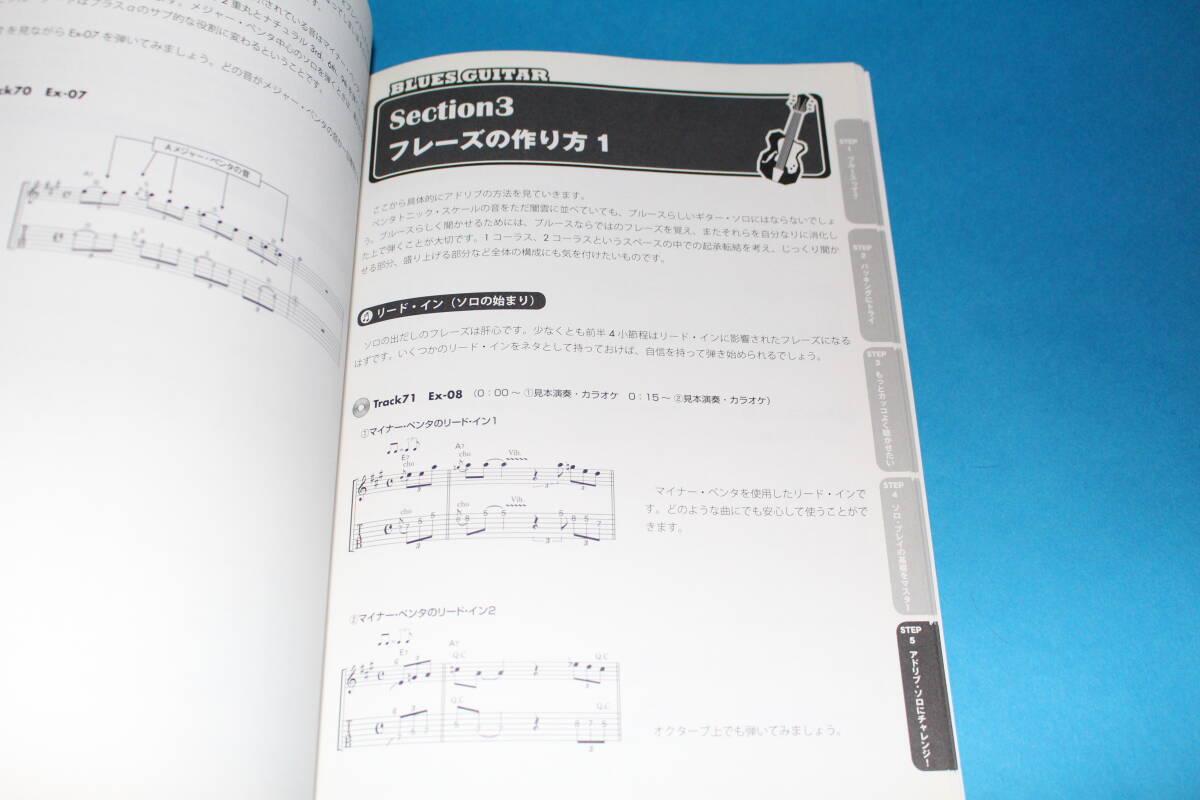 2重丸とナチュラル3rd、6th、9th
メジャー・ペンタ中心のソロを弾くときは
はプラスαのサブ的な役割に変わるということです。
を見ながらEx-07を弾いてみましょう。どの音がメジャー・ペンタの音か
ck70 Ex-07
Aメジャー・ペンタの音
A7
BLUES GUITAR
Section3
フレーズの作り方 1
ここから具体的にアドリブの方法を見ていきます。
ペンタトニック・スケールの音をただ闇雲に並べていても、ブルースらしいギター・ソロにはならないでしょ
う。ブルースらしく聞かせるためには、ブルースならではのフレーズを覚え、またそれらを自分なりに消化し
た上で弾くことが大切です。1コーラス、2コーラスというスペースの中での起承転結を考え、じっくり聞か
せる部分、盛り上げる部分など全体の構成にも気を付けたいものです。
リード・イン（ソロの始まり）
ソロの出だしのフレーズは肝心です。少なくとも前半4小節程はリード・インに影響されたフレーズになる
はずです。いくつかのリード・インをネタとして持っておけば、自信を持って弾き始められるでしょう。
Track71 Ex-08 （0：00～ ①見本演奏・カラオケ 0：15～ ②見本演奏・カラオケ）
①マイナー・ペンタのリード・イン1
E7 A7
cho cho Vib.
3 3 3
cho cho Vib.
3 3 3
マイナー・ペンタを使用したリード・インで
す。どのような曲にでも安心して使うことがで
きます。
②マイナー・ペンタのリード・イン2
E7 A7
Q.C Q.C
Q.C Q.C
6 6 7 5
3
オクターブ上でも弾いてみましょう。
STEP
1
STEP
2 バッキングにトライ
STEP
3 もっとカッコよく聴かせたい
STEP
4 ソロ・プレイの基礎をマスター！
STEP
5 アドリブ・ソロにチャレンジ！